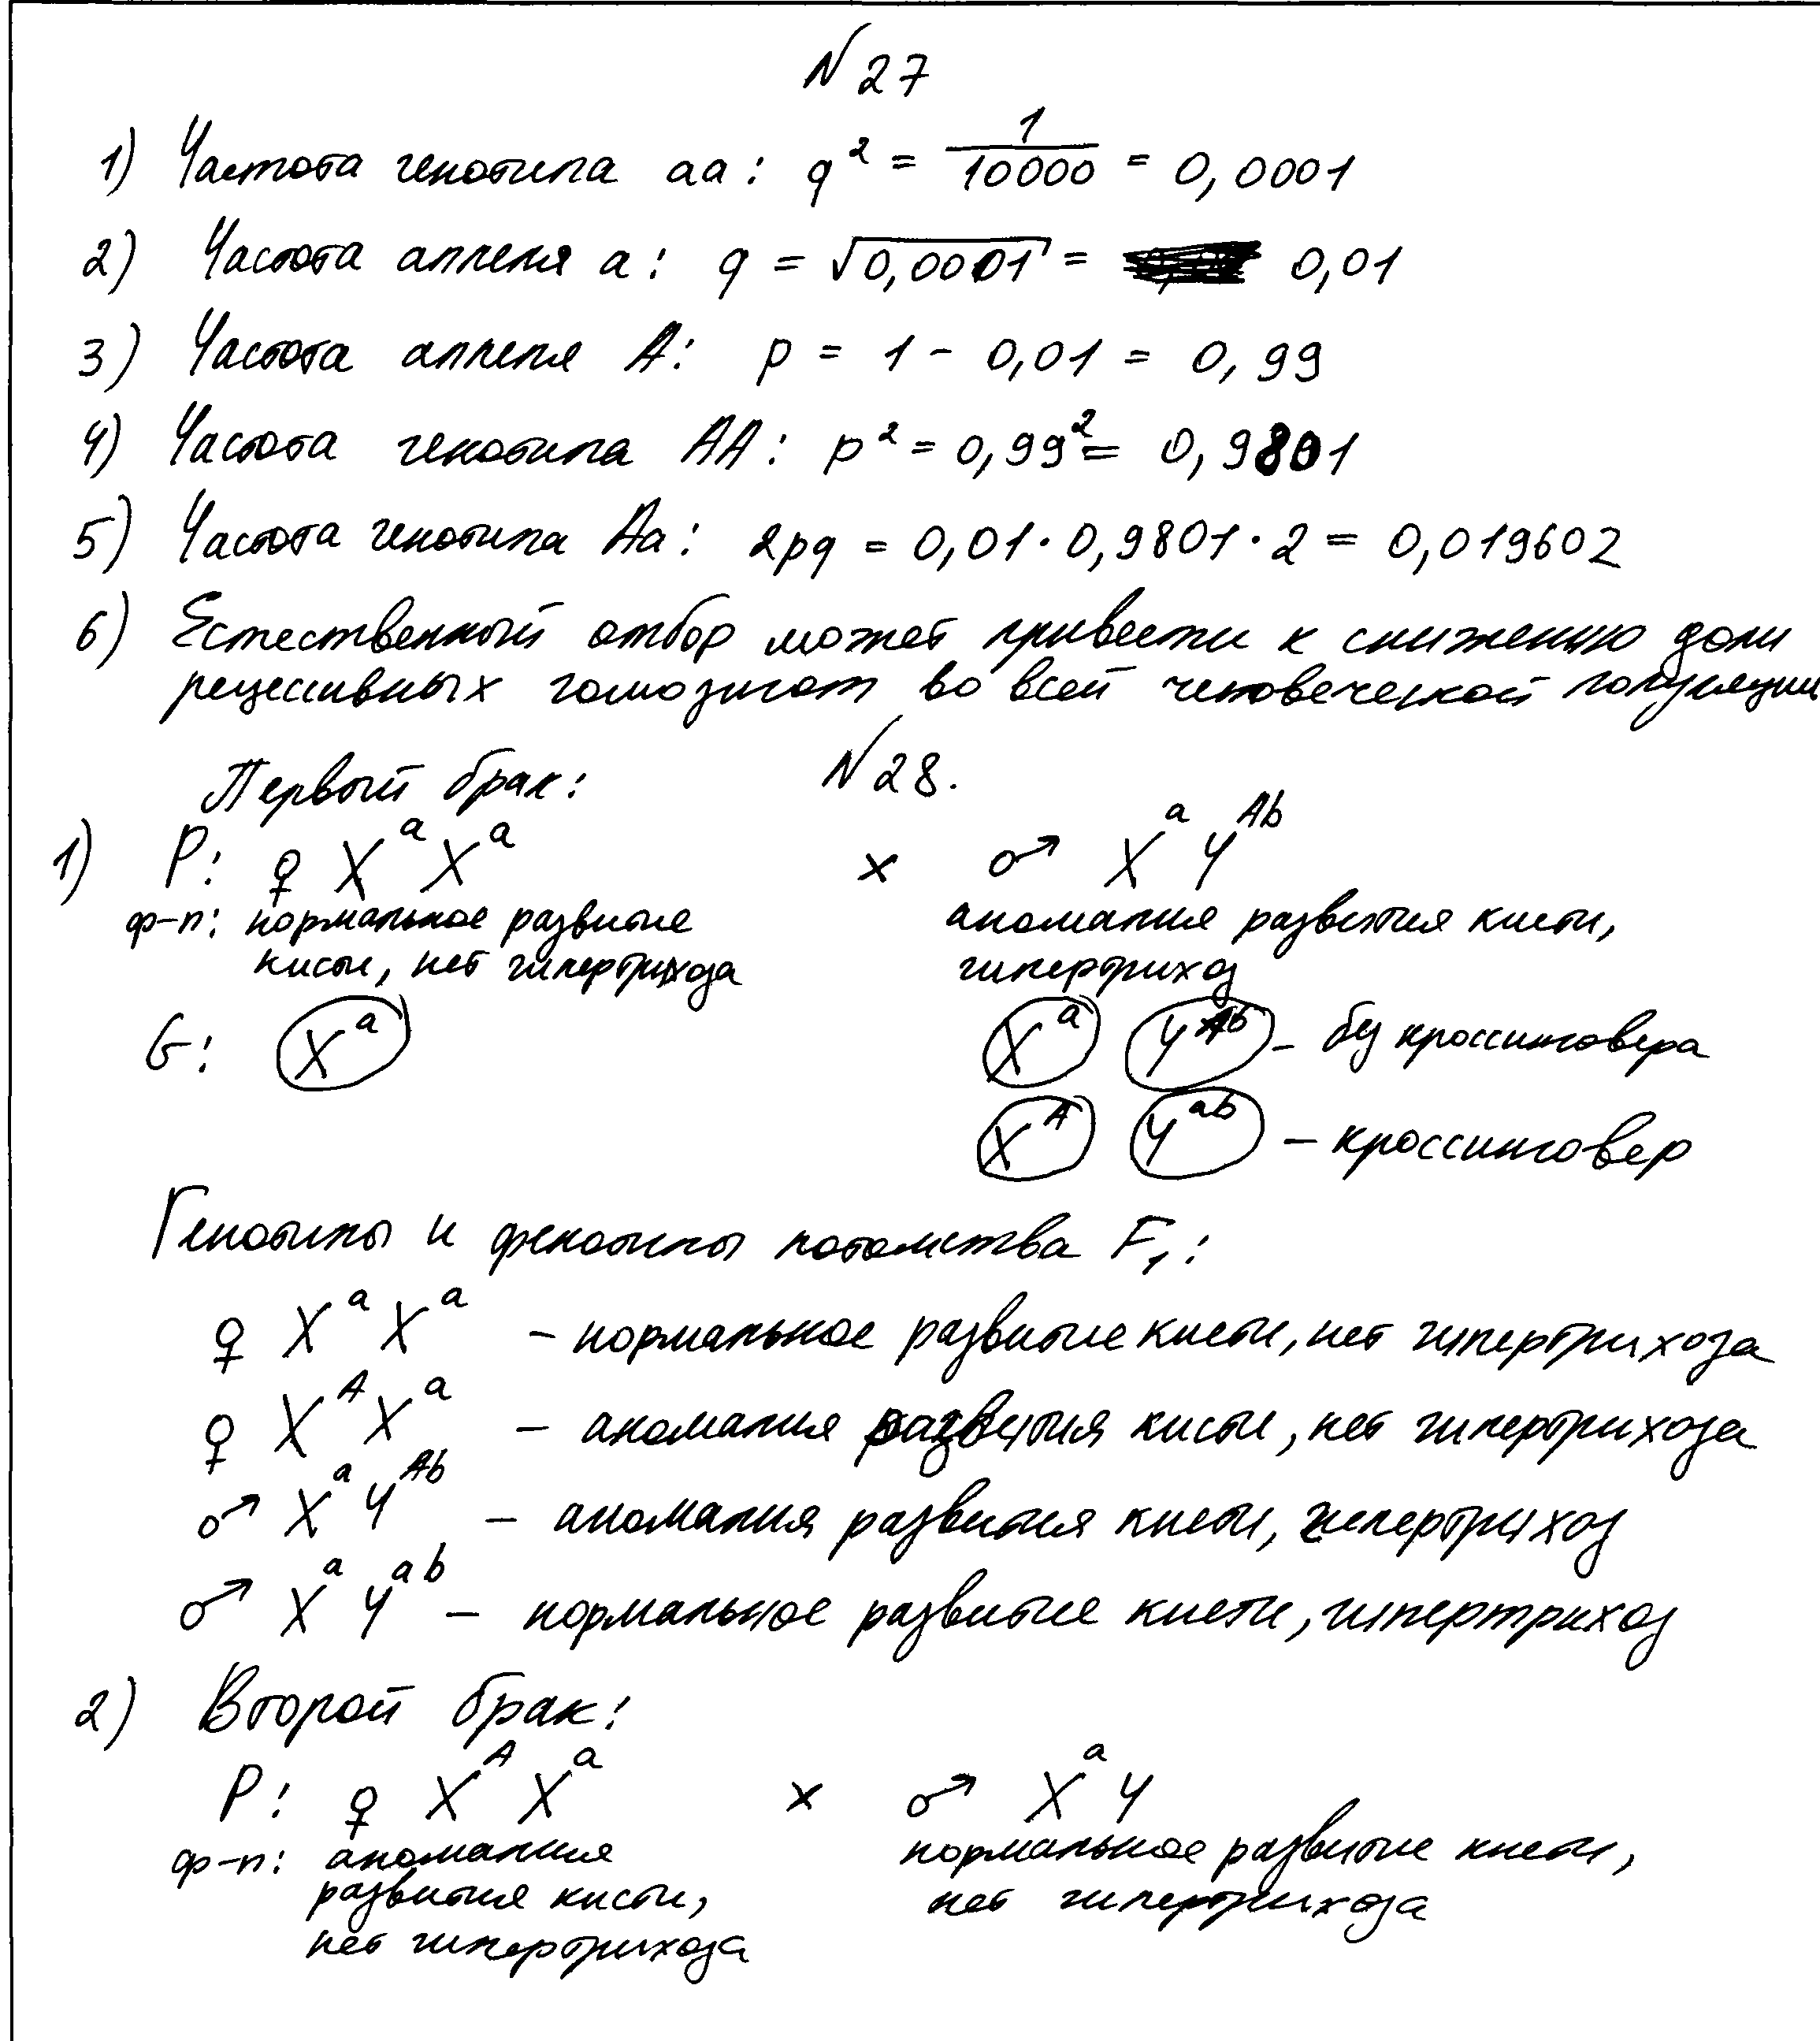 N 27
1) Частота генотипа aa: q² = 1/10000 = 0,0001
2) Частота аллеля a: q = √0,0001 = 0,01
3) Частота аллеля A: p = 1 - 0,01 = 0,99
4) Частота генотипа AA: p² = 0,99² = 0,9801
5) Частота генотипа Aa: 2pq = 0,01 · 0,9801 · 2 = 0,019602
6) Естественный отбор может привести к снижению доли
рецессивных гомозигот во всей человеческой популяции
N 28.
Первый брак:
1) P: ♀ XᵃXᵃ x ♂ XᵃYᴬᵇ
ф-п: нормальное развитие аномалия развития кисти,
кисти, нет гипертрихоза гипертрихоз
G: Xᵃ Xᵃ Yᴬᵇ - без кроссинговера
Xᴬ Yᵃᵇ - кроссинговер
Генотипы и фенотипы потомства F₁:
♀ XᵃXᵃ - нормальное развитие кисти, нет гипертрихоза
♀ XᴬXᵃ - аномалия развития кисти, нет гипертрихоза
♂ XᵃYᴬᵇ - аномалия развития кисти, гипертрихоз
♂ XᵃYᵃᵇ - нормальное развитие кисти, гипертрихоз
2) Второй брак:
P: ♀ XᴬXᵃ x ♂ XᵃY
ф-п: аномалия нормальное развитие кисти,
развития кисти, нет гипертрихоза
нет гипертрихоза